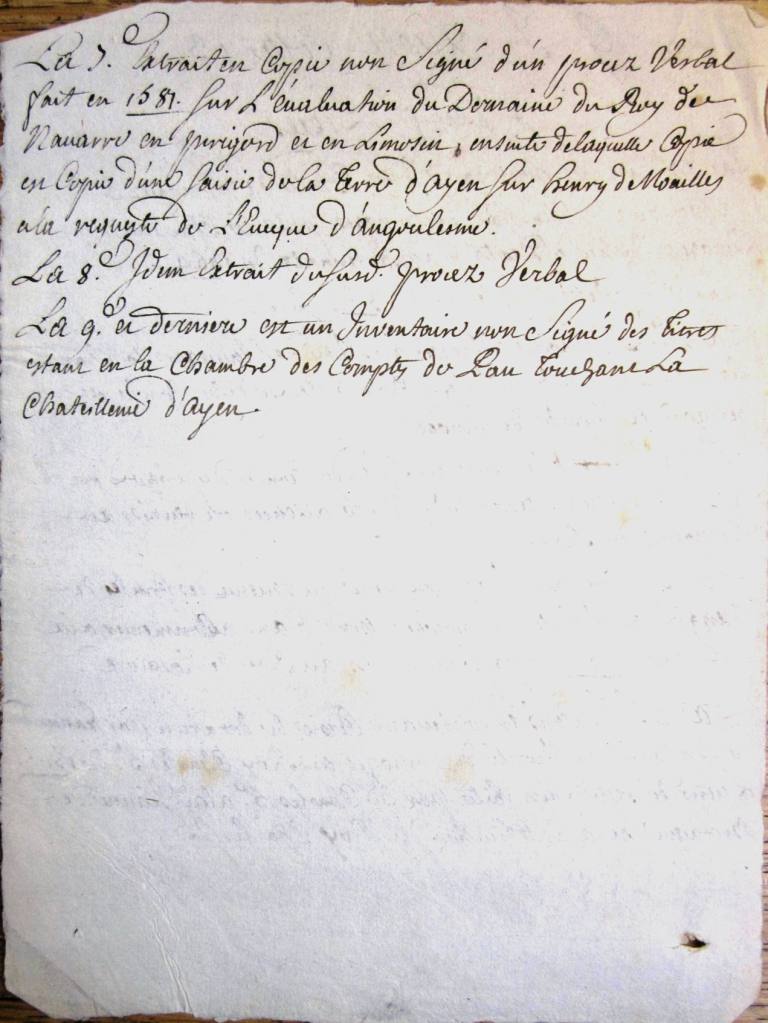 La 7.e Extrait en Copie non Signé d'un procez Verbal
fait en 1581. sur L'Evaluation du Domaine du Roy de
Navarre en perigord et en Limosin, ensuite de laquelle Copie
est Copie d'une saisie de la Terre d'ayen sur henry de Noailles
a la requeste de L'Eveque d'angoulesme.
La 8.e Idem Extrait du susd. procez Verbal
La 9.e et derniere est un Inventaire non Signé des titres
estant en la Chambre des Comptes de Pau touchant La
Chatellenie d'ayen.